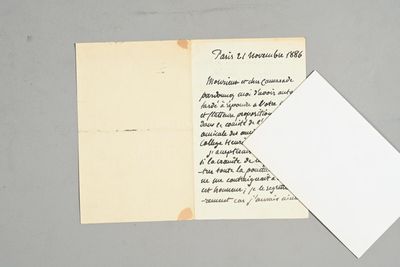 Paris 21 novembre 1886
Monsieur et cher Camarade
pardonnez moi d'avoir autant
tardé à répondre à votre
et flatteuse proposition
dans ce comité de l'
amicale des
Collège Henri
j'accepterais
si la crainte de
ne me contraignait à
cet honneur; je le regrette
car j'aurais aimé